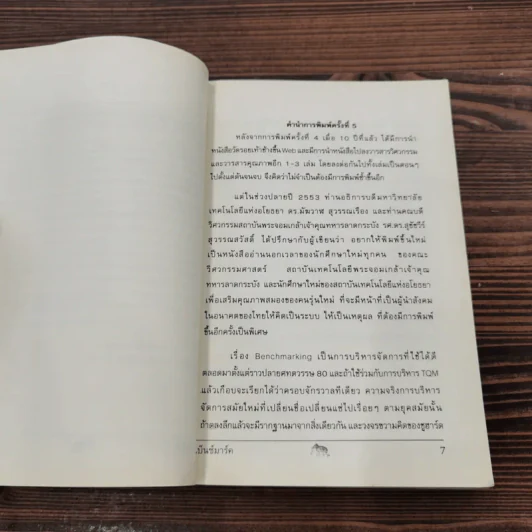 คำนำการพิมพ์ครั้งที่ 5
หลังจากการพิมพ์ครั้งที่ 4 เมื่อ 10 ปีที่แล้ว ได้มีการนำ
หนังสือวัดรอยเท้าช้างขึ้น Web และมีการนำหนังสือไปลงวารสารวิศวกรรม
และวารสารคุณภาพอีก 1-3 เล่ม โดยลงต่อกันไปทั้งเล่มเป็นตอนๆ
ไปตั้งแต่ต้นจนจบ จึงคิดว่าไม่จำเป็นต้องมีการพิมพ์ซ้ำขึ้นอีก
แต่ในช่วงปลายปี 2553 ท่านอธิการบดีมหาวิทยาลัย
เทคโนโลยีแห่งอโยธยา ดร.มัฆวาฬ สุวรรณเรือง และท่านคณบดี
วิศวกรรมสถาบันพระจอมเกล้าเจ้าคุณทหารลาดกระบัง รศ.ดร.สุชัชวีร์
สุวรรณสวัสดิ์ ได้ปรึกษากับผู้เขียนว่า อยากให้พิมพ์ขึ้นใหม่
เป็นหนังสืออ่านนอกเวลาของนักศึกษาใหม่ทุกคน ของคณะ
วิศวกรรมศาสตร์ สถาบันเทคโนโลยีพระจอมเกล้าเจ้าคุณ
ทหารลาดกระบัง และนักศึกษาใหม่ของสถาบันเทคโนโลยีแห่งอโยธยา
เพื่อเสริมคุณภาพสมองของคนรุ่นใหม่ ที่จะมีหน้าที่เป็นผู้นำสังคม
ในอนาคตของไทยให้คิดเป็นระบบ ให้เป็นเหตุผล ที่ต้องมีการพิมพ์
ขึ้นอีกครั้งเป็นพิเศษ
เรื่อง Benchmarking เป็นการบริหารจัดการที่ใช้ได้ดี
ตลอดมาตั้งแต่ราวปลายศทตวรรษ 80 และถ้าใช้ร่วมกับการบริหาร TQM
แล้วเกือบจะเรียกได้ว่าครอบจักรวาลทีเดียว ความจริงการบริหาร
จัดการสมัยใหม่ที่เปลี่ยนชื่อเปลี่ยนแซ่ไปเรื่อยๆ ตามยุคสมัยนั้น
ถ้าดูลงลึกแล้วจะมีรากฐานมาจากสิ่งเดียวกัน และวงจรความคิดของชูฮาร์ต
เบ็นช์มาร์ค 7